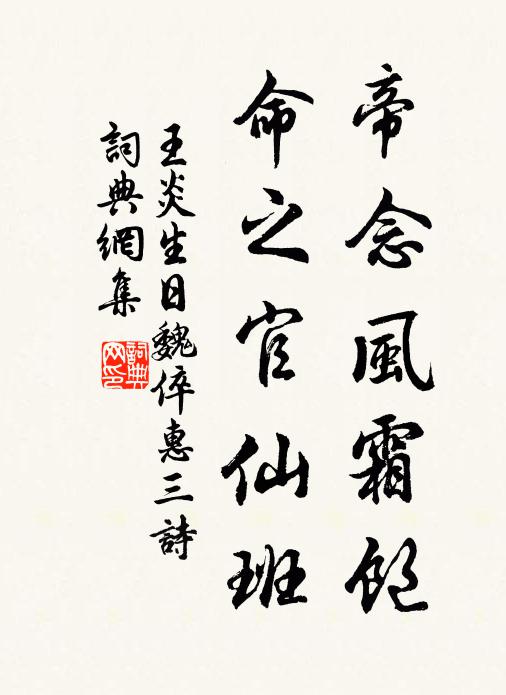 帝念風霜飽
命之官仙班
王炎生日魏倅惠三詩
詞典網集
詞典
网印